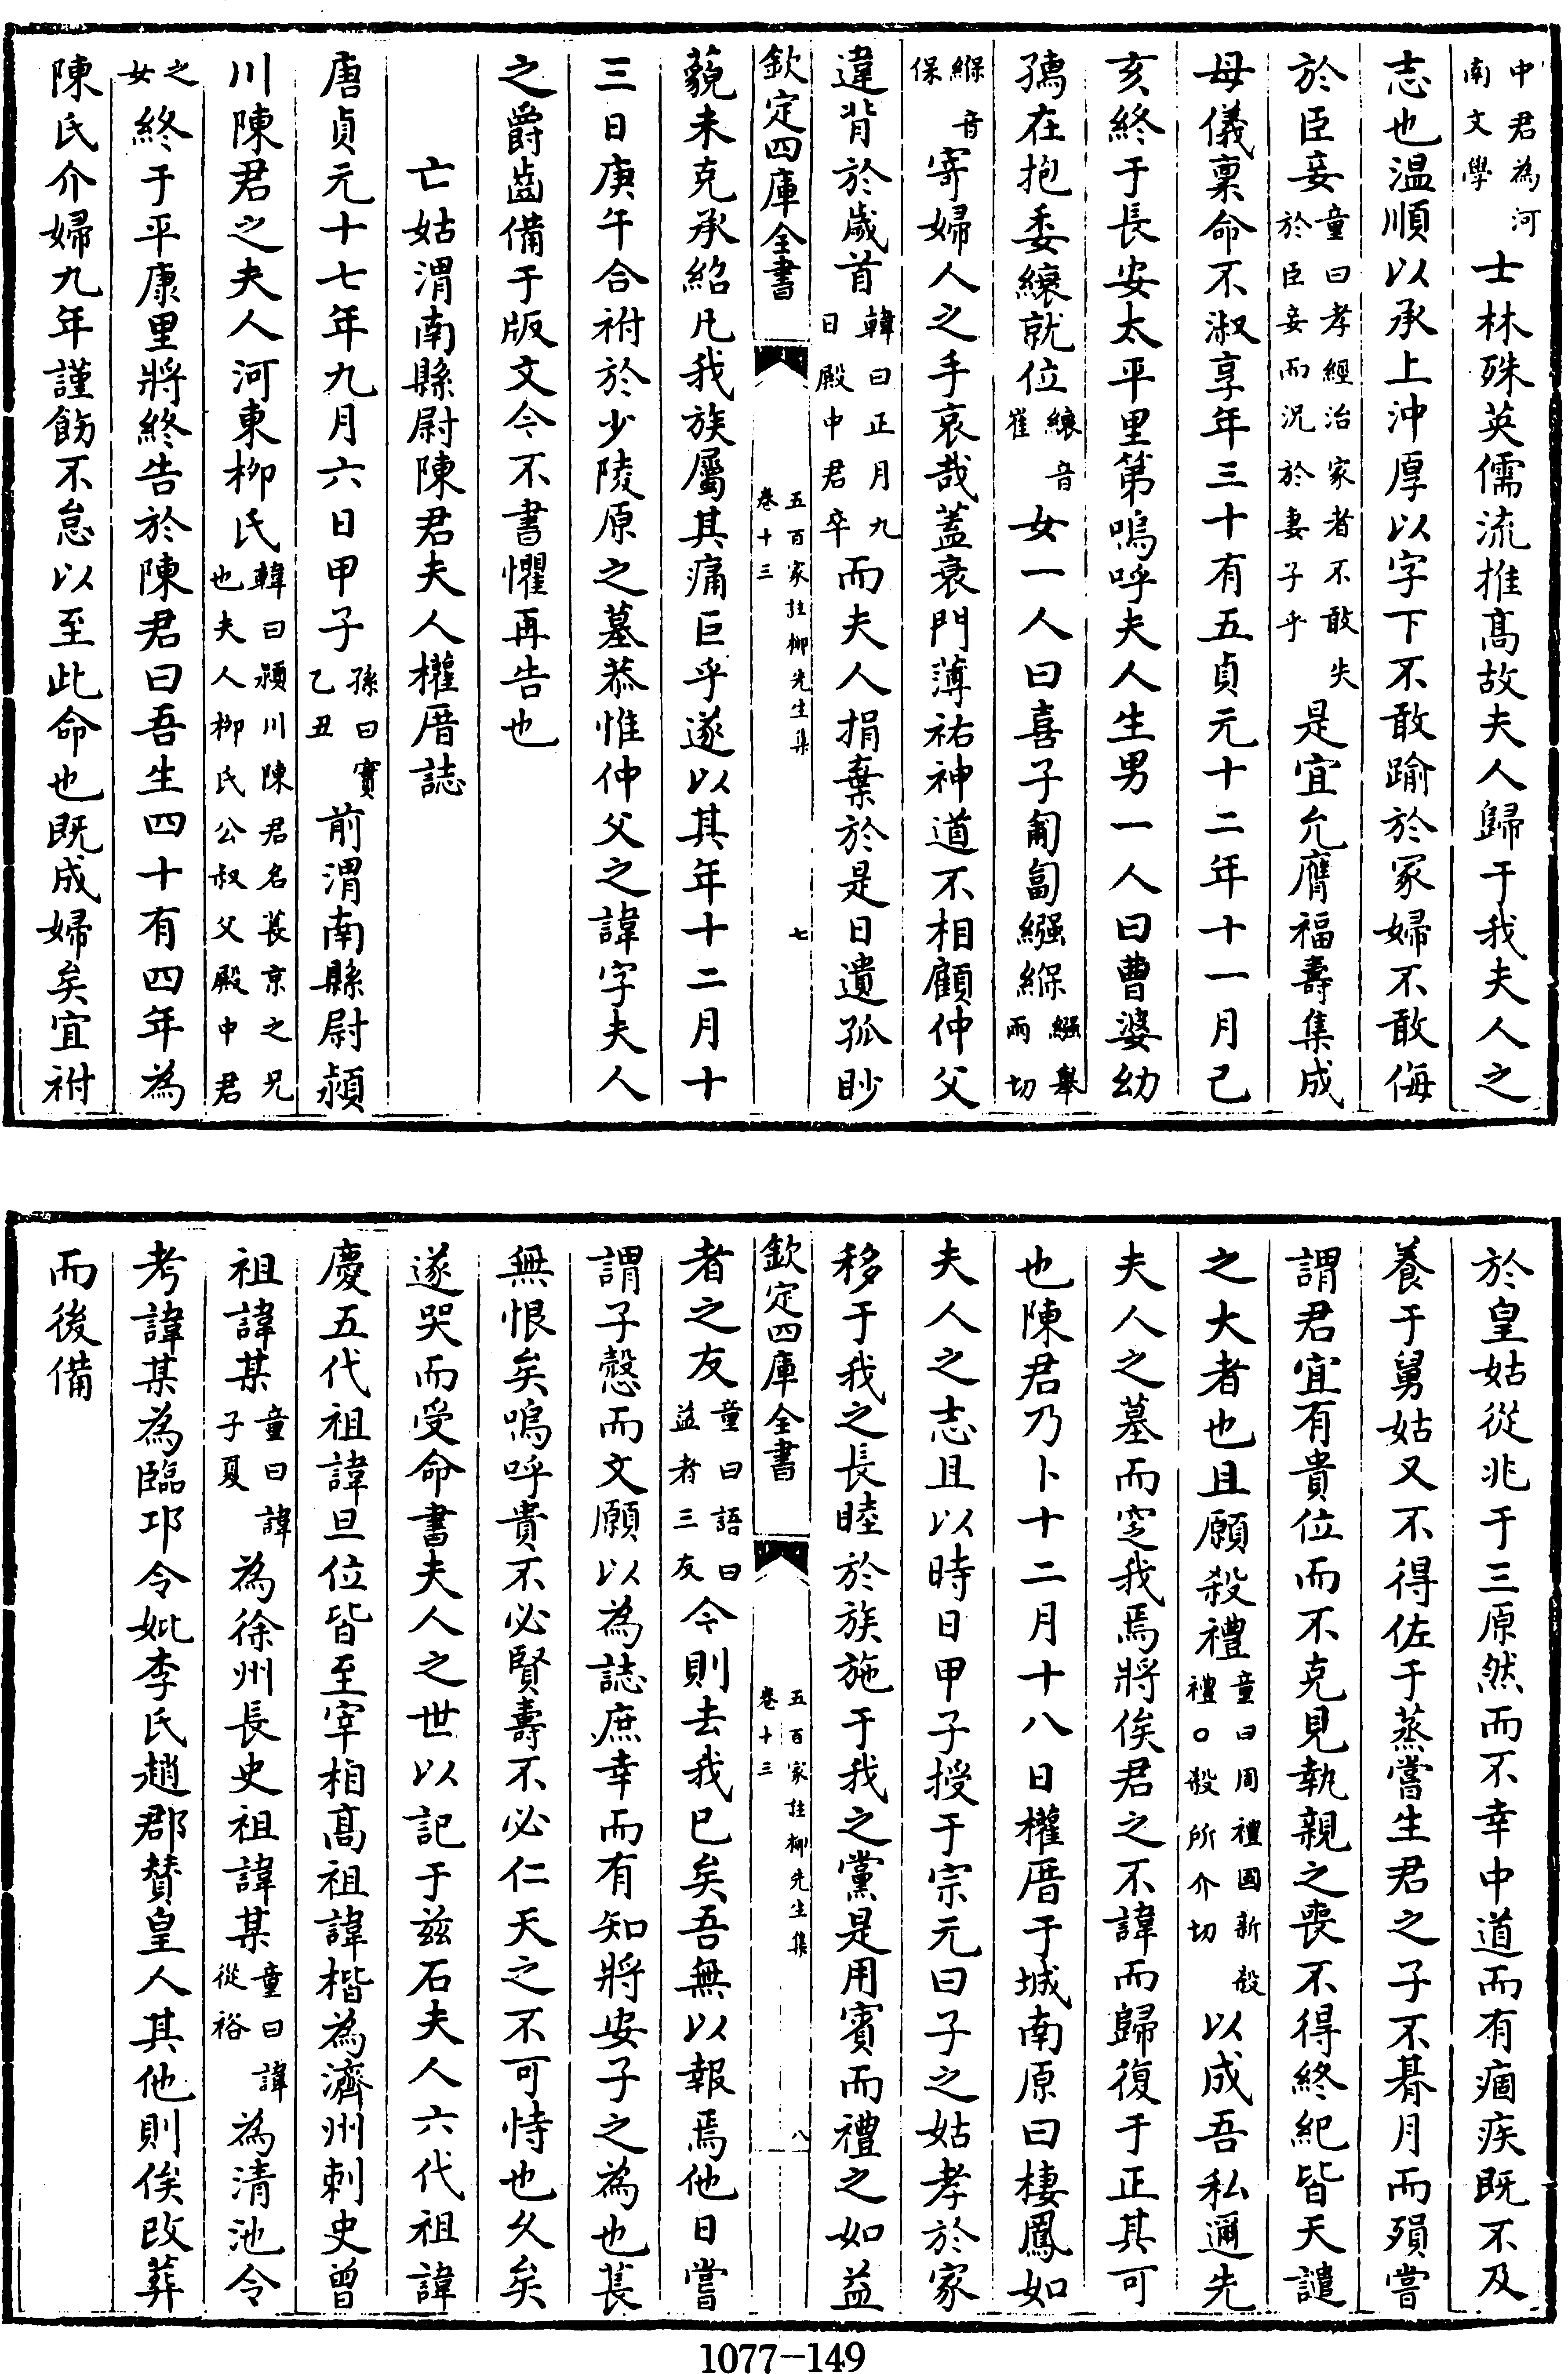 中君為河南文學士林殊英儒流推髙故夫人歸于我夫人之
志也温順以承上沖厚以字下不敢踰於冢婦不敢侮
於臣妾童曰孝經治家者不敢失於臣妾而況於妻子乎是宜允膺福壽集成
母儀稟命不淑享年三十有五貞元十二年十一月己
亥終于長安太平里第嗚呼夫人生男一人曰曹婆幼
孺在抱委縗就位縗音崔女一人曰喜子匍匐繦緥繦舉兩切
緥音保寄婦人之手哀哉蓋衰門薄祐神道不相顧仲父
違背於歲首韓曰正月九日殿中君卒而夫人捐棄於是日遺孤眇
欽定四庫全書
五百家註柳先生集
卷十三
七
藐未克承紹凡我族屬其痛巨乎遂以其年十二月十
三日庚午合祔於少陵原之墓恭惟仲父之諱字夫人
之爵齒備于版文今不書懼再告也
亡姑渭南縣尉陳君夫人權厝誌
唐貞元十七年九月六日甲子孫曰實乙丑前渭南縣尉潁
川陳君之夫人河東柳氏韓曰潁川陳君名萇京之兄也夫人柳氏公叔父殿中君
之女終于平康里將終告於陳君曰吾生四十有四年為
陳氏介婦九年謹飭不怠以至此命也既成婦矣宜祔
於皇姑從兆于三原然而不幸中道而有痼疾既不及
養于舅姑又不得佐于蒸嘗生君之子不朞月而殞嘗
謂君宜有貴位而不克見執親之喪不得終紀皆天譴
之大者也且願殺禮童曰周禮國新殺禮○殺所介切以成吾私邇先
夫人之墓而窆我焉將俟君之不諱而歸復于正其可
也陳君乃卜十二月十八日權厝于城南原曰棲鳳如
夫人之志且以時日甲子授于宗元曰子之姑孝於家
移于我之長睦於族施于我之黨是用賓而禮之如益
欽定四庫全書
五百家註柳先生集
卷十三
八
者之友童曰語曰益者三友今則去我已矣吾無以報焉他日嘗
謂子慤而文願以為誌庶幸而有知將安子之為也萇
無恨矣嗚呼貴不必賢壽不必仁天之不可恃也久矣
遂哭而受命書夫人之世以記于兹石夫人六代祖諱
慶五代祖諱旦位皆至宰相髙祖諱楷為濟州刺史曾
祖諱某童曰諱子夏為徐州長史祖諱某童曰諱從裕為清池令
考諱某為臨邛令妣李氏趙郡贊皇人其他則俟改葬
而後備
1077—149